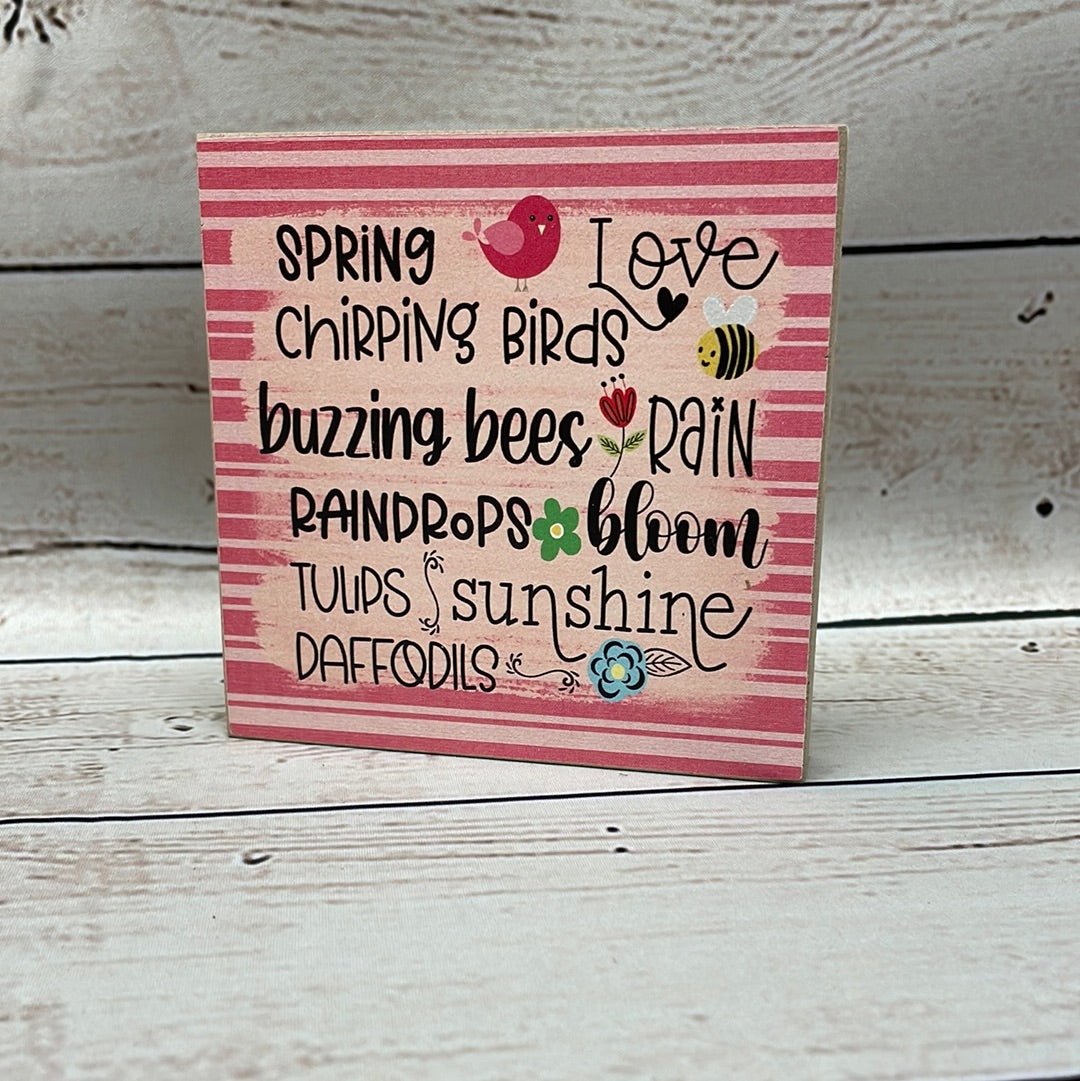 SPRiNg Love
ChiRPiNg BiRdS
buzzing bees RaiN
RAINDRoPS bloom
TULIPS sunshine
DAFFODILS